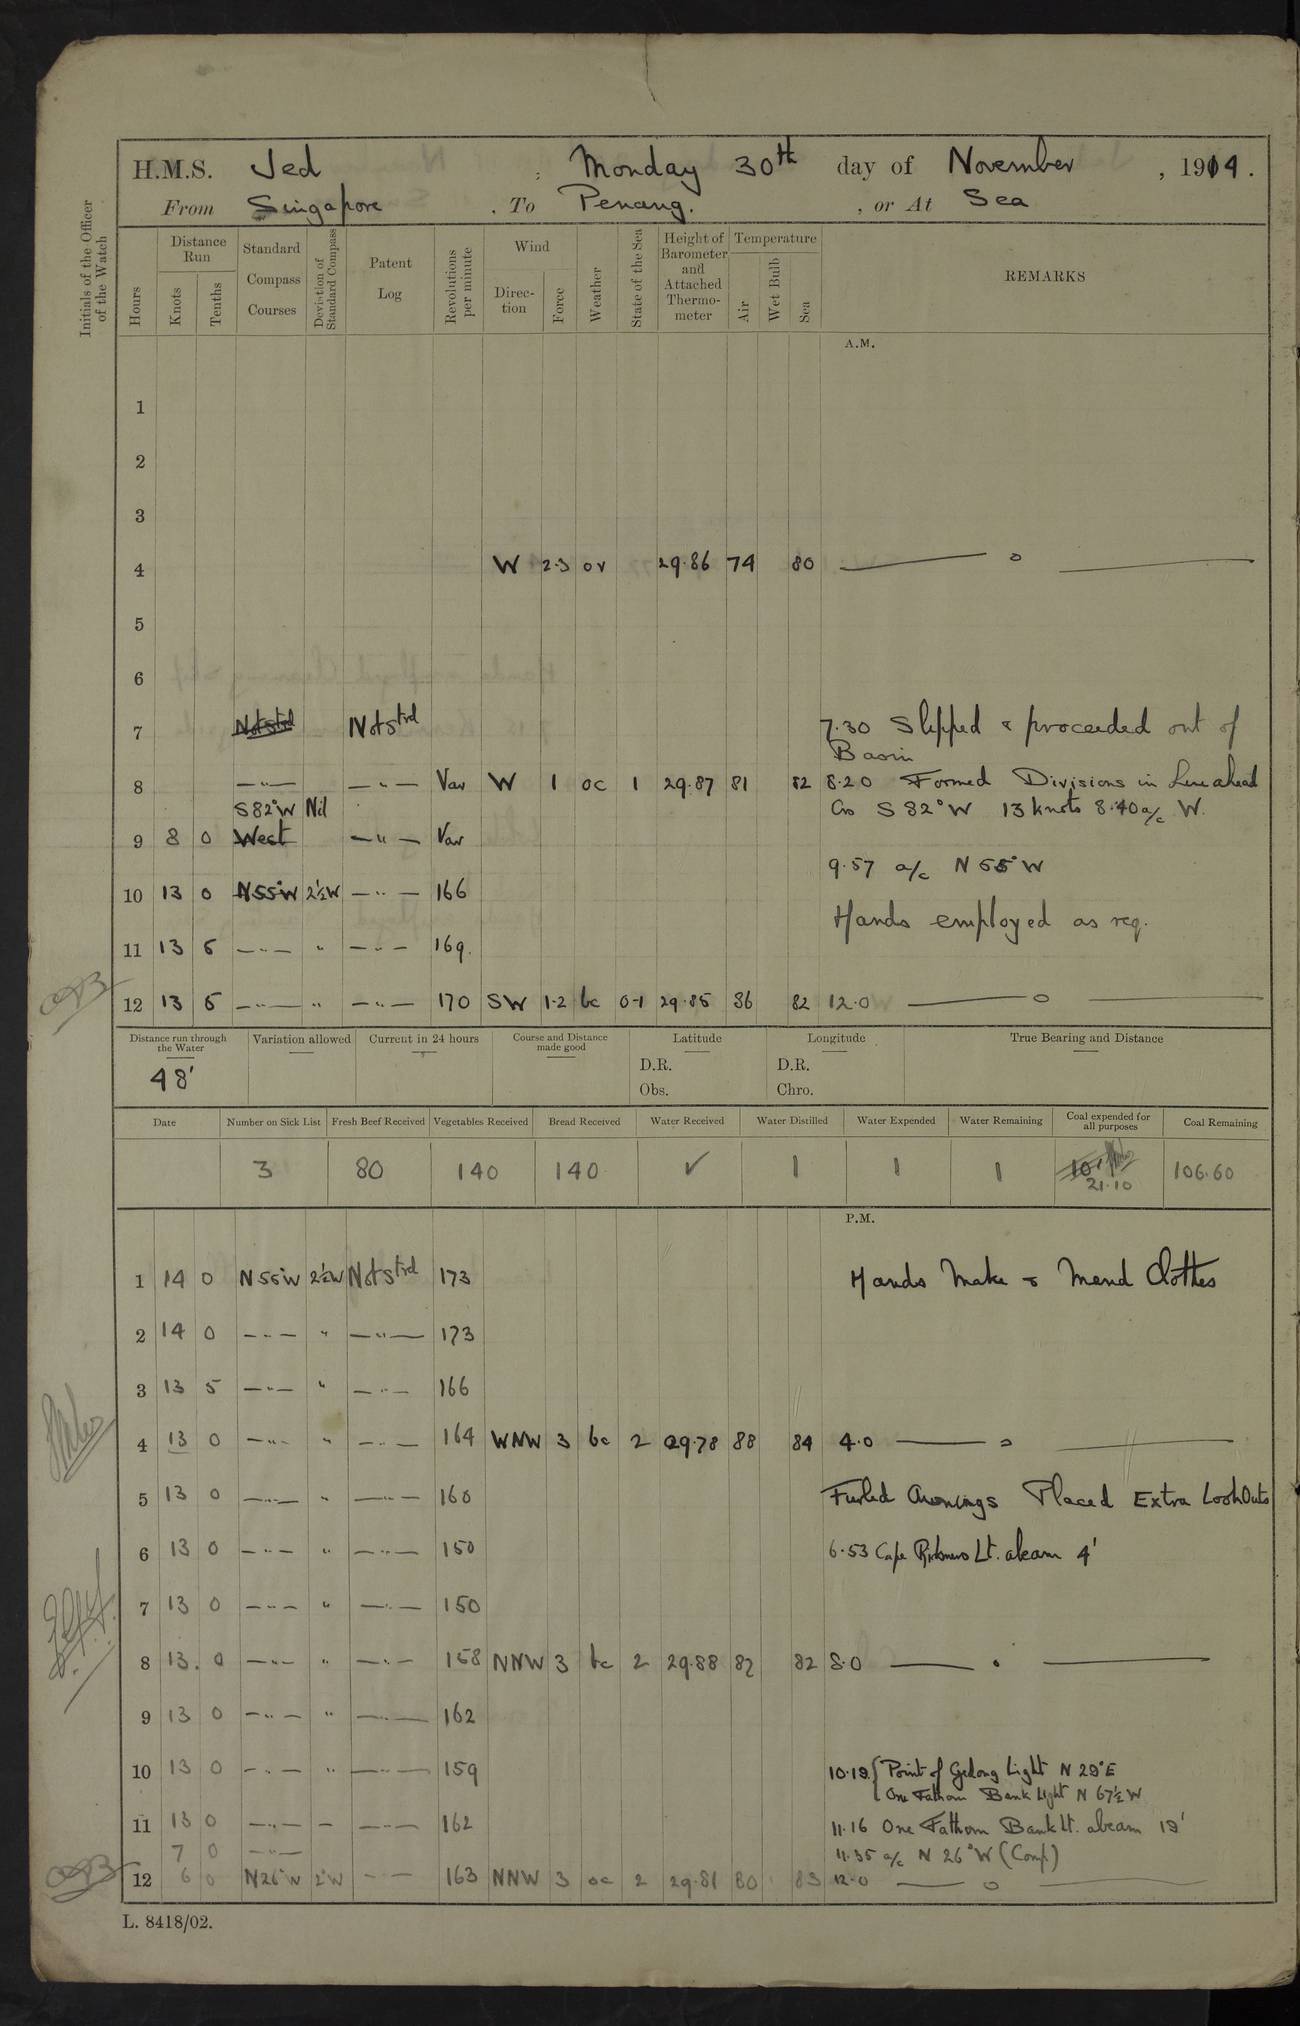 H.M.S. Jed ; Monday 30th day of November , 1914.
From Singapore , To Penang. , or At Sea
Initials of the Officer of the Watch
Hours
Distance Run
Knots
Tenths
Standard Compass Courses
Deviation of Standard Compass
Patent Log
Revolutions per minute
Wind
Direction
Force
Weather
State of the Sea
Height of Barometer and Attached Thermometer
Temperature
Air
Wet Bulb
Sea
REMARKS
A.M.
1
2
3
4 W 2·3 ov 29·86 74 80 —— o ——
5
6
7 Not Strd Not Strd 7.30 Slipped & proceeded out of
Basin
8 —"— —"— Var W 1 oc 1 29·87 81 82 8·20 Formed Divisions in Line ahead
S 82°W Nil Co S 82° W 13 knots 8·40 a/c W.
9 8 0 West —"— Var
9·57 a/c N 55° W
10 13 0 N55°W 2½W —"— 166
Hands employed as req.
11 13 5 —"— " —"— 169.
12 13 5 —"— " —"— 170 SW 1·2 bc 0-1 29·85 86 82 12·0 —— o ——
Distance run through the Water
48'
Variation allowed
Current in 24 hours
Course and Distance made good
Latitude
D.R.
Obs.
Longitude
D.R.
Chro.
True Bearing and Distance
Date Number on Sick List Fresh Beef Received Vegetables Received Bread Received Water Received Water Distilled Water Expended Water Remaining Coal expended for all purposes Coal Remaining
3 80 140 140 ✓ 1 1 1 21·10 106·60
P.M.
1 14 0 N 55°W 2½W Not Strd 173 Hands Make & Mend Clothes
2 14 0 —"— " —"— 173
3 13 5 —"— " —"— 166
4 13 0 —"— " —"— 164 WNW 3 bc 2 29·78 88 84 4·0 —— o ——
5 13 0 —"— " —"— 160 Furled Awnings Placed Extra LookOuts
6 13 0 —"— " —"— 150 6·53 Cape Lt. abeam 4'
7 13 0 —"— " —"— 150
8 13. 0 —"— " —"— 158 NNW 3 bc 2 29·88 82 82 8·0 —— o ——
9 13 0 —"— " —"— 162
10 13 0 —"— " —"— 159 10·19 { Point of Gedong Light N 29°E
One Fathom Bank Light N 67½ W
11 13 0 —"— – —"— 162 11·16 One Fathom Bank Lt. abeam 19'
7 0 —"— 11·35 a/c N 26° W (Comp.)
12 6 0 N26°W 2°W — — 163 NNW 3 oc 2 29·81 80 83 12·0 —— o ——
L. 8418/02.